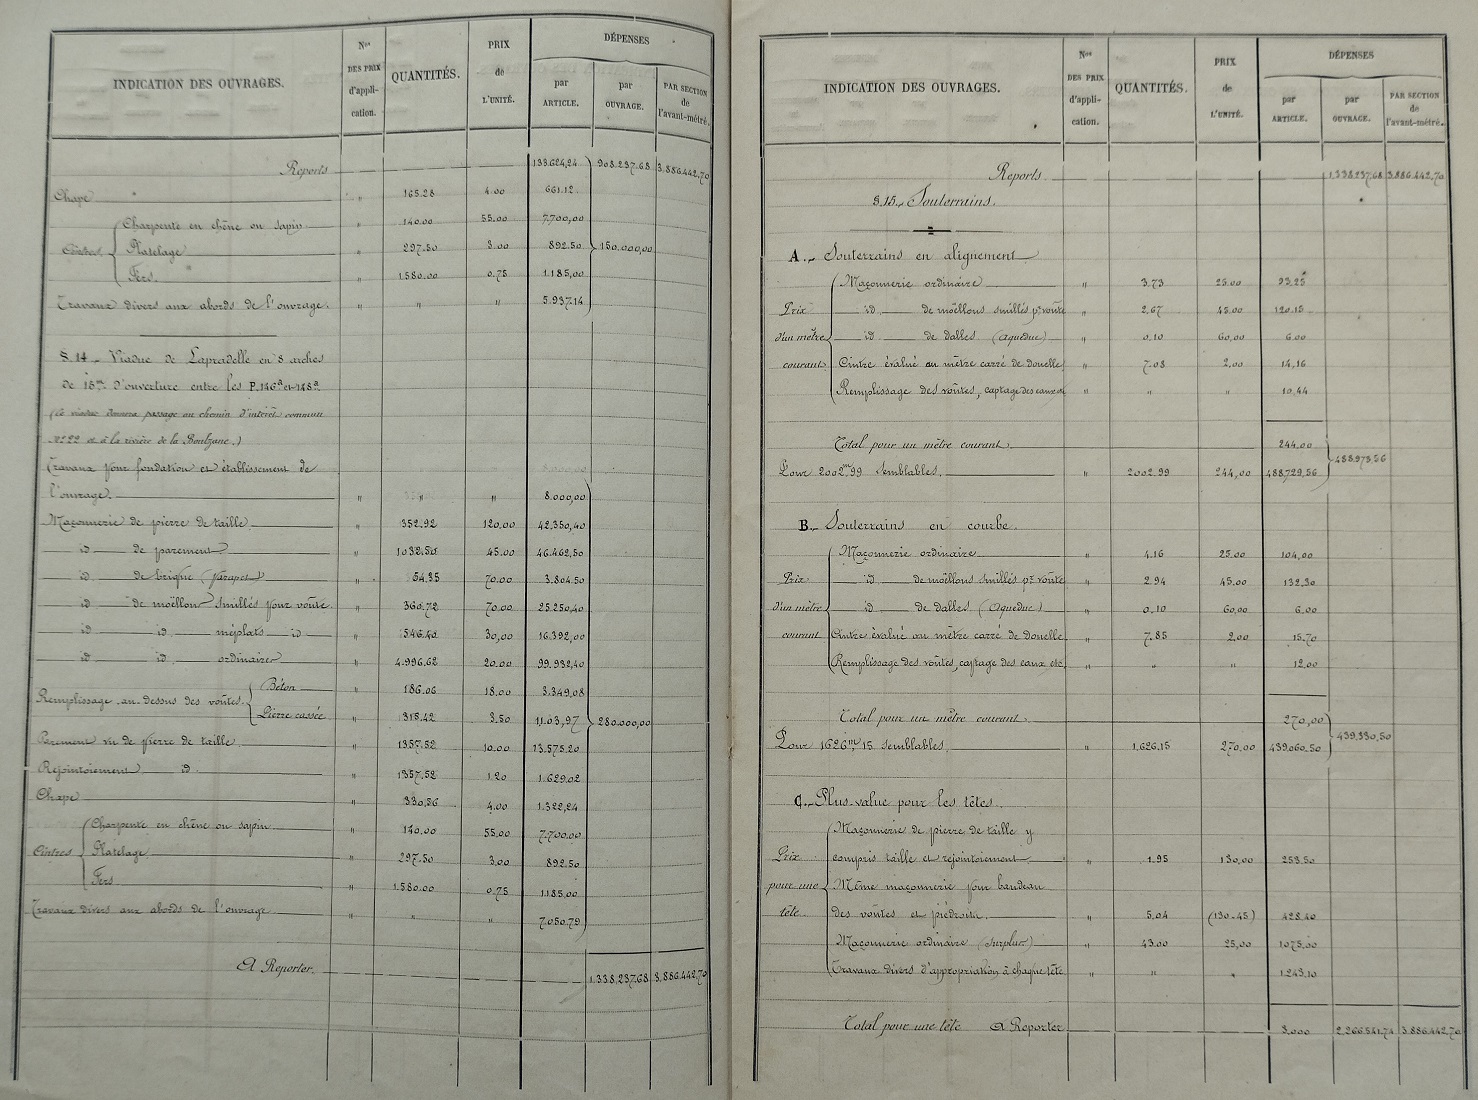 INDICATION DES OUVRAGES. Nos DES PRIX d'appli- cation. QUANTITÉS. PRIX de L'UNITÉ. DÉPENSES par ARTICLE. par OUVRAGE. PAR SECTION de l'avant-métré.
Reports 133.624,24 908.237.68 3.886.442.70
Chape " 165.28 4.00 661.12
Cintres Charpente en chêne ou sapin " 140.00 55.00 7.700,00
Platelage " 297.50 3.00 892.50 150.000,00
Fers " 1.580.00 0.75 1.185,00
Travaux divers aux abords de l'ouvrage. " " " 5.937.14
§.14. Viaduc de Lapradelle en 8 arches
de 18m d'ouverture entre les P.146a et 148a
(Ce viaduc donnera passage au chemin d'intérêt commun
No 22 et à la rivière de la Boulzane.)
Travaux pour fondation et établissement de
l'ouvrage. " " " 8.000,00
Maçonnerie de pierre de taille " 352.92 120.00 42.350,40
id de parement " 1032.50 45.00 46.462,50
id de brique (parapet) " 54.35 70.00 3.804.50
id de moëllons smillés pour voûte " 360.72 70.00 25.250,40
id id méplats id " 546.40 30,00 16.392,00
id id ordinaires " 4.996.62 20.00 99.932,40
Remplissage au dessus des voûtes. Béton " 186.06 18.00 3.349.08
Pierre cassée " 315.42 3.50 1.103,97 280.000,00
Parement vu de pierre de taille " 1357.52 10.00 13.575.20
Rejointoiement id. " 1357.52 1.20 1.629.02
Chape " 330.56 4.00 1.322,24
Cintres Charpente en chêne ou sapin " 140.00 55.00 7.700.00
Platelage " 297.50 3,00 892.50
Fers " 1.580.00 0.75 1.185,00
Travaux divers aux abords de l'ouvrage " " " 7.050.79
A Reporter. 1.338.237.68 3.886.442.70
INDICATION DES OUVRAGES. Nos DES PRIX d'appli- cation. QUANTITÉS. PRIX de L'UNITÉ. DÉPENSES par ARTICLE. par OUVRAGE. PAR SECTION de l'avant-métré.
Reports 1.338.237.68 3.886.442.70
§.15. Souterrains.
A. Souterrains en alignement
Maçonnerie ordinaire " 3.73 25.00 93.25
Prix id de moëllons smillés pr voûte " 2.67 45.00 120.15
d'un mètre id de dalles (Aqueduc) " 0.10 60,00 6.00
courant Cintre évalué au mètre carré de douelle " 7.08 2,00 14,16
Remplissage des voûtes, captage des eaux etc " " " 10.44
Total pour un mètre courant 244.00
Pour 2002m99 semblables. " 2002.99 244,00 488.729,56 488.973.56
B. Souterrains en courbe.
Maçonnerie ordinaire " 4.16 25.00 104,00
Prix id de moëllons smillés pr voûte " 2.94 45.00 132.30
d'un mètre id de dalles (Aqueduc) " 0.10 60,00 6.00
courant Cintre évalué au mètre carré de douelle " 7.85 2,00 15.70
Remplissage des voûtes, captage des eaux etc. " " " 12,00
Total pour un mètre courant 270,00
Pour 1626m,15 semblables. " 1.626.15 270.00 439.060.50 439.330,50
C. Plus-value pour les têtes.
Maçonnerie de pierre de taille y
Prix compris taille et rejointoiement " 1.95 130,00 253.50
pour une Même maçonnerie pour bandeau
tête des voûtes et piédroits. " 5.04 (130-45) 428.40
Maçonnerie ordinaire (surplus) " 43.00 25,00 1075.00
Travaux divers d'appropriation à chaque tête " " " 1.243.10
Total pour une tête A Reporter 3.000 2.266.541.74 3.886.442.70